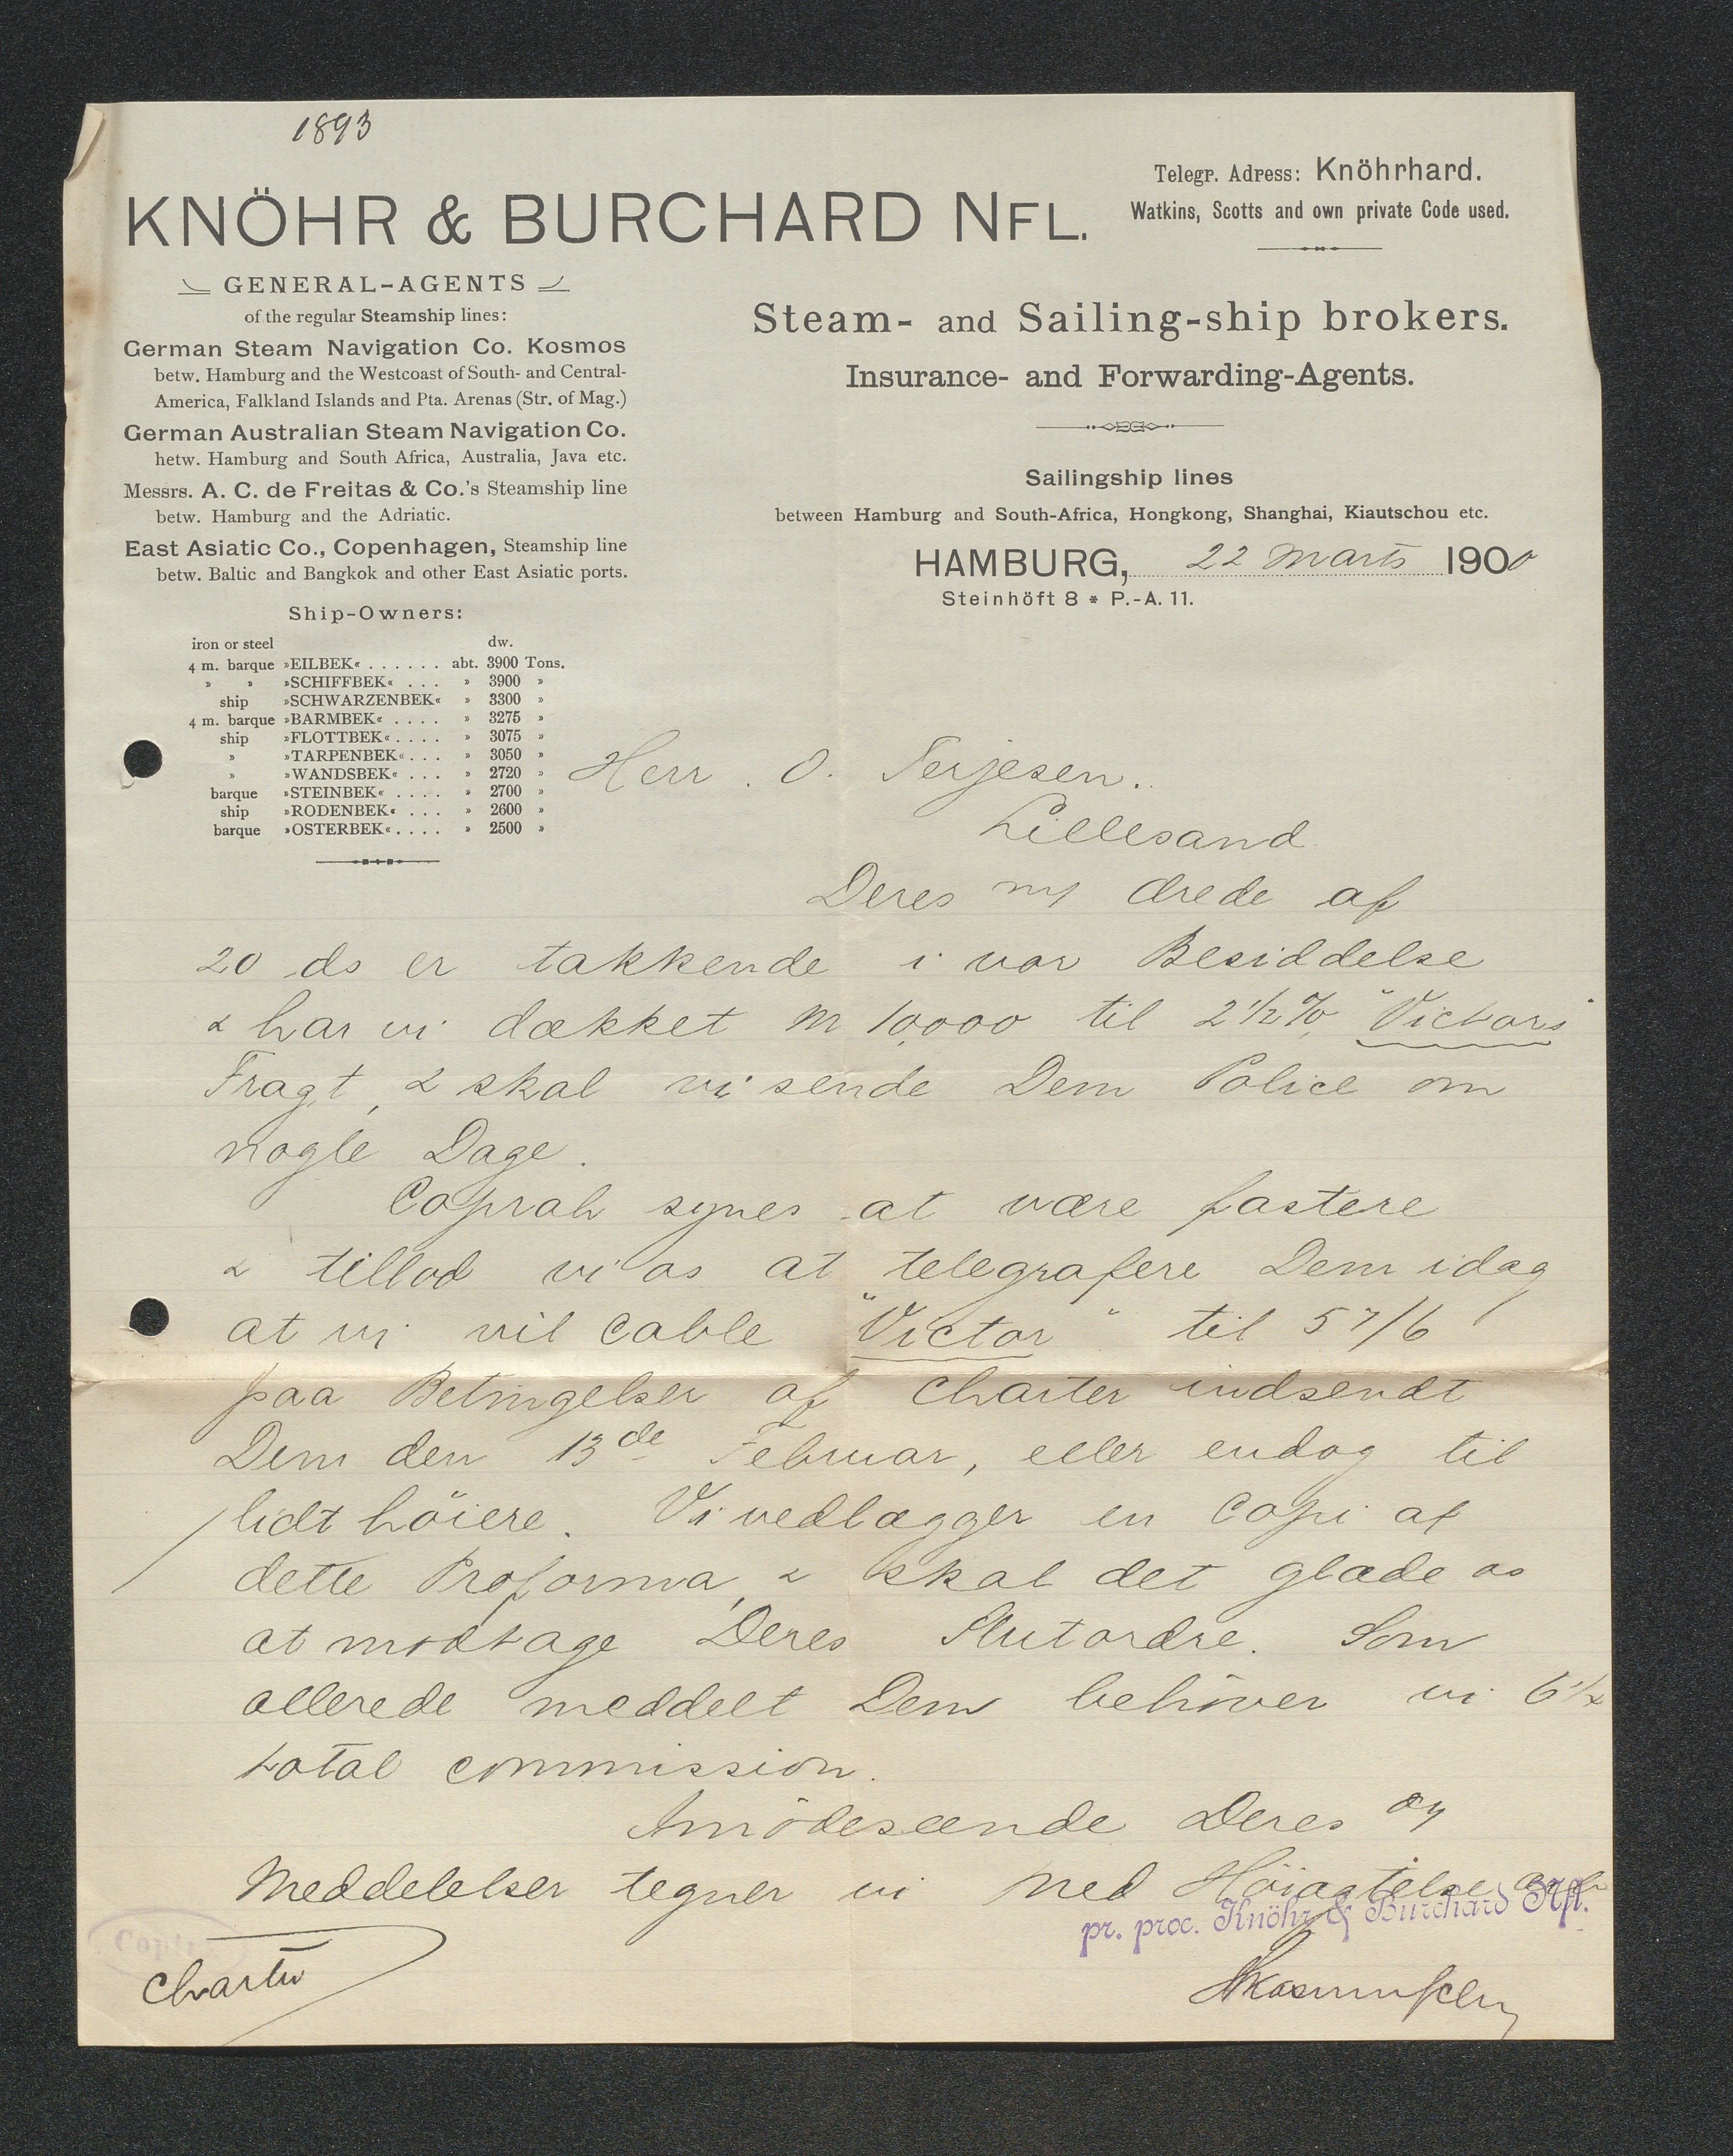 1893
Telegr. Adress: Knöhrhard.
Watkins, Scotts and own private Code used.
KNÖHR & BURCHARD NFL.
GENERAL-AGENTS
of the regular Steamship lines:
German Steam Navigation Co. Kosmos
betw. Hamburg and the Westcoast of South- and Central-
America, Falkland Islands and Pta. Arenas (Str. of Mag.)
German Australian Steam Navigation Co.
hetw. Hamburg and South Africa, Australia, Java etc.
Messrs. A. C. de Freitas & Co.'s Steamship line
betw. Hamburg and the Adriatic.
East Asiatic Co., Copenhagen, Steamship line
betw. Baltic and Bangkok and other East Asiatic ports.
Ship-Owners:
iron or steel dw.
4 m. barque »EILBEK« . . . . . . abt. 3900 Tons.
» » »SCHIFFBEK« . . . » 3900 »
ship »SCHWARZENBEK« » 3300 »
4 m. barque »BARMBEK« . . . . » 3275 »
ship »FLOTTBEK« . . . . » 3075 »
» »TARPENBEK« . . . » 3050 »
» »WANDSBEK« . . . » 2720 »
barque »STEINBEK« . . . . » 2700 »
ship »RODENBEK« . . . » 2600 »
barque »OSTERBEK« . . . . » 2500 »
Steam- and Sailing-ship brokers.
Insurance- and Forwarding-Agents.
Sailingship lines
between Hamburg and South-Africa, Hongkong, Shanghai, Kiautschou etc.
HAMBURG, 22 Marts 1900
Steinhöft 8 * P.-A. 11.
Herr. O. Terjesen.
Lillesand
Deres ærede af
20 ds er takkende i vor Besiddelse
& har vi dækket M 10,000 til 2 1/2 % "Victors"
Fragt, & skal vi sende Dem Police om
nogle Dage.
Coprah synes at være fastere
& tillod vi os at telegrafere Dem idag
at vi vil cable "Victor" til 57/6
paa Betingelser af Charter indsendt
Dem den 13de Februar, eller endog til
lidt höiere. Vi vedlægger en Copi af
dette Proforma, & skal det glæde os
at modtage Deres Slutordre. Som
allerede meddelt Dem behöver vi 6 1/4
total commission.
Imödeseende Deres
Meddelelser tegner vi med Höiagtelse
pr. proc. Knöhr & Burchard Nfl.
Copirt
Charter